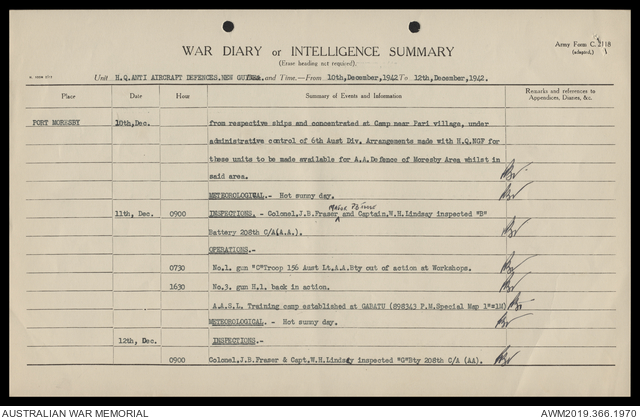 WAR DIARY or INTELLIGENCE SUMMARY
(Erase heading not required).
Army Form C.2118
(adapted.)
Unit H.Q.ANTI AIRCRAFT DEFENCES,NEW GUINEA. and Time.—From 10th,December,1942 To 12th,December,1942.
Place Date Hour Summary of Events and Information Remarks and references to Appendices, Diaries, &c.
PORT MORESBY 10th,Dec. from respective ships and concentrated at Camp near Pari village, under
administrative control of 6th Aust Div. Arrangements made with H.Q.NGF for
these units to be made available for A.A.Defence of Moresby Area whilst in
said area.
METEOROLOGICAL.- Hot sunny day.
11th, Dec. 0900 INSPECTIONS. - Colonel,J.B.Fraser, Major and Captain,W.H.Lindsay inspected "B"
Battery 208th C/A(A.A.).
OPERATIONS.-
0730 No.1. gun "C"Troop 156 Aust Lt.A.A.Bty out of action at Workshops.
1630 No.3. gun H.1. back in action.
A.A.S.L. Training camp established at GABATU (898343 P.M.Special Map 1"=1M)
METEOROLOGICAL. - Hot sunny day.
12th, Dec. INSPECTIONS.-
0900 Colonel.J.B.Fraser & Capt.W.H.Lindsay inspected "G"Bty 208th C/A (AA).
AUSTRALIAN WAR MEMORIAL
AWM2019.366.1970